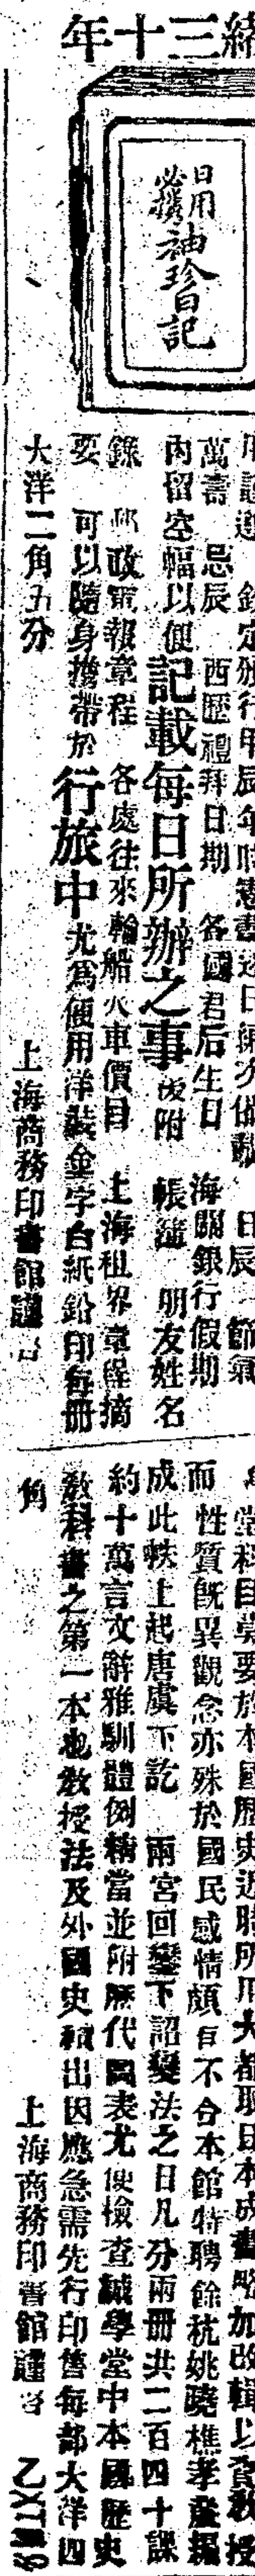 緒三十年
日用必攜袖珍日記
欽定頒行甲辰年時憲書逐日編次備載 日辰 節氣
萬壽 忌辰 西歷禮拜日期 各國君后生日 海關銀行假期
內留空幅以便記載每日所辦之事後附 帳簿 朋友姓名
錄 郵政電報章程 各處往來輪船火車價目 上海租界章程摘
要 可以隨身攜帶於行旅中尤為便用洋裝金字白紙鉛印每冊
大洋二角五分 上海商務印書館謹啟
堂科目莫要於本國歷史近時所用大都取日本成書略加改輯以資教授
而性質既異觀念亦殊於國民感情頗有不合本館特聘餘杭姚曉樵孝廉編
成此帙上起唐虞下訖 兩宮回鑾下詔變法之日凡分兩冊共二百四十課
約十萬言文辭雅馴體例精當並附歷代圖表尤便檢查誠學堂中本國歷史
教科書之第一本也教授法及外國史續出因應急需先行印售每部大洋四
角 上海商務印書館謹啟